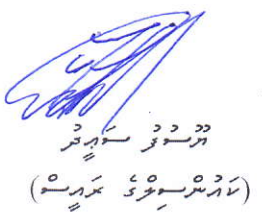 ޔޫސުފު ސަޢީދު
(ކައުންސިލްގެ ރައީސް)